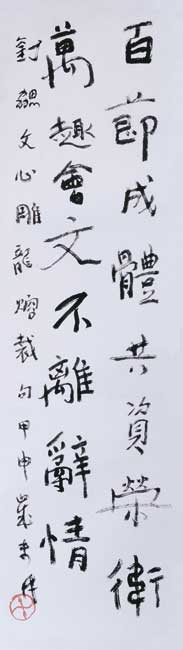 百節成體共資榮衛
萬趣會文不離辭情
劉勰文心雕龍熔裁句甲申歲末